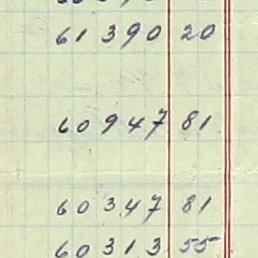 61390 20
60947 81
60347 81
60313 55